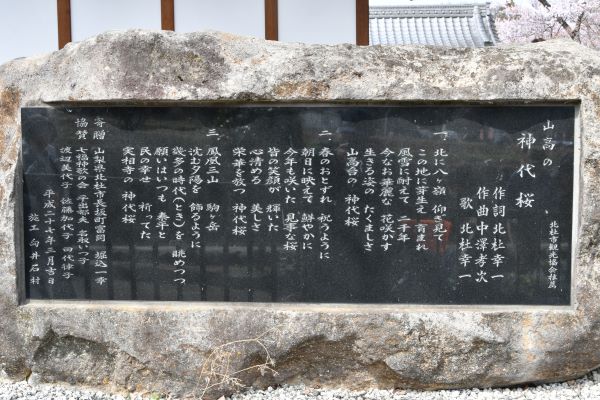 山高の
神代桜
北杜市観光協会推薦
作詞 北杜幸一
作曲 中澤孝次
歌 北杜幸一
一、北に八ヶ嶺 仰ぎ見て
この地に芽生え 育まれ
風雪に耐えて 二千年
今なお華麗な 花咲かす
生きる姿の たくましさ
山高台の 神代桜
二、春のおとずれ 祝うように
朝日に映えて 鮮やかに
今年も咲いた 見事な桜
皆の笑顔が 輝いた
心清める 美しさ
栄華を放つ 神代桜
三、鳳凰三山 駒ヶ岳
沈む夕陽を 飾るように
幾多の時代(とき)を 眺めつつ
願いはいつも 泰平と
民の幸せ 祈ってた
実相寺の 神代桜
寄贈 山梨県北杜市長坂町富岡 堀込一幸
協賛 七福神歌の会
名取いつ子
渡辺美代子 佐藤加代子 四代律子
平成二十七年二月吉日
施工 向井石材